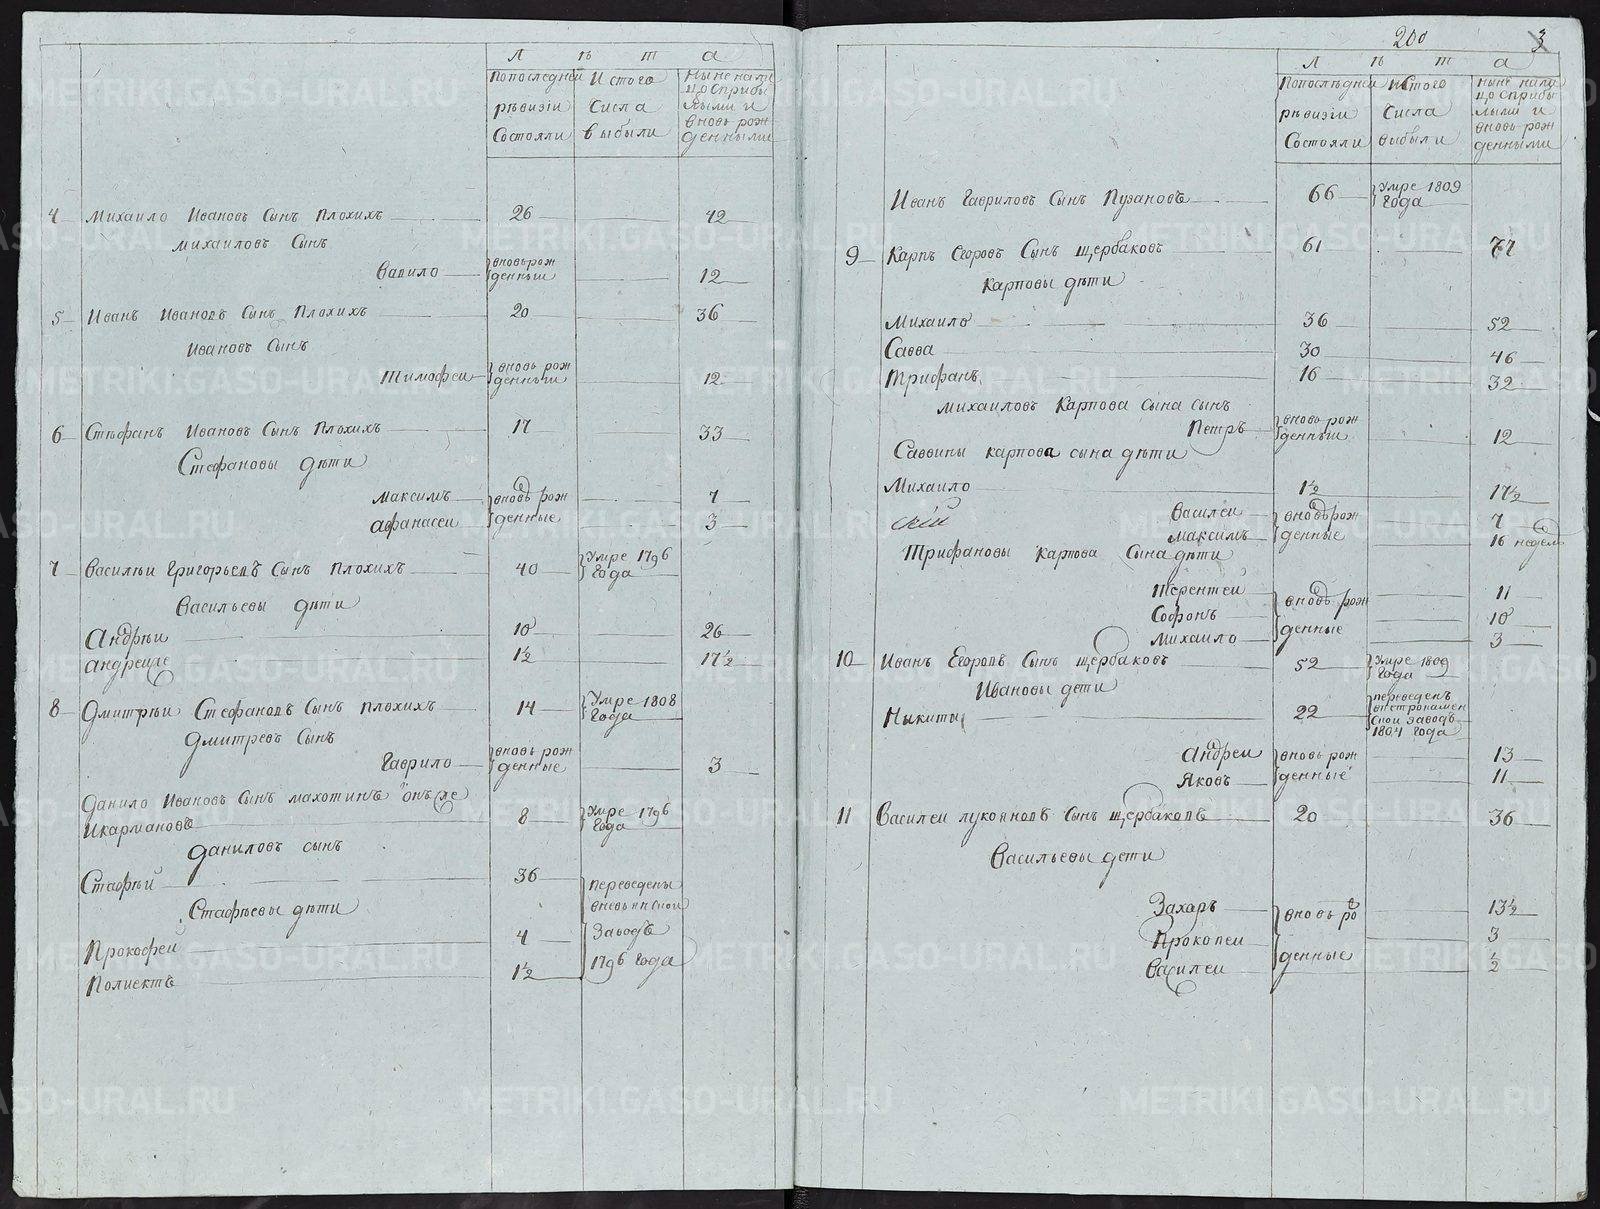 Л ѣ т а
Попоследней ревизiи Состояли
Истого Числа выбыли
Ныне налицо сприбылыми и вновь рожденными
4 Михаило Ивановъ Сынъ Плохихъ 26 42
Михаиловъ Сынъ
Вавило вновь рожденныи 12
5 Иванъ Ивановъ Сынъ Плохихъ 20 36
Ивановъ Сынъ
Тимофеи вновь рожденныи 12
6 Стефанъ Ивановъ Сынъ Плохихъ 17 33
Стефановы дѣти
Максимъ вновь рожденные 7
Афанасеи 3
7 Василѣи Григорьевъ Сынъ Плохихъ 40 Умре 1796 Года
Васильевы дѣти
Андрѣи 10 26
Андреиже 1½ 17½
8 Дмитрѣи Стефановъ Сынъ Плохихъ 14 Умре 1808 Года
Дмитревъ Сынъ
Гаврило вновь рожденные 3
Данило Ивановъ Сынъ Махотинъ онъже
Икармановъ 8 Умре 1796 Года
Даниловъ сынъ
Стафѣй 36 переведены
Стафѣевы дѣти
Заводъ
Прокофеи 4
1796 Года
Полиектъ 1½
200 3
Л ѣ т а
Попослѣдней ревизiи Состояли
Истого Числа выбыли
Ныне налицо сприбылыми и вновь рожденными
Иванъ Гавриловъ Сынъ Пузановъ 66 Умре 1809 Года
9 Карпъ Егоровъ Сынъ Щербаковъ 61 77
Карповы дѣти
Михаило 36 52
Савва 30 46
Трифанъ 16 32
Михаиловъ Карпова сына сынъ
Петръ вновь рожденныи 12
Саввины Карпова сына дѣти
Михаило 1½ 17½
скiй Василеи вновь рожденные 7
Максимъ 16 недель
Трифановы Карпова Сына дѣти
Терентеи вновь рожденные 11
Софонъ 10
Михаило 3
10 Иванъ Егоровъ Сынъ Щербаковъ 52 Умре 1809 Года
Ивановы дети
Никита 22 переведенъ
заводъ
1804 Года
Андреи вновь рожденные 13
Яковъ 11
11 Василеи Лукояновъ Сынъ Щербаковъ 20 36
Васильевы дети
Захаръ вновь рожденные 13½
Прокопеи 3
Василеи ½
METRIKI.GASO-URAL.RU